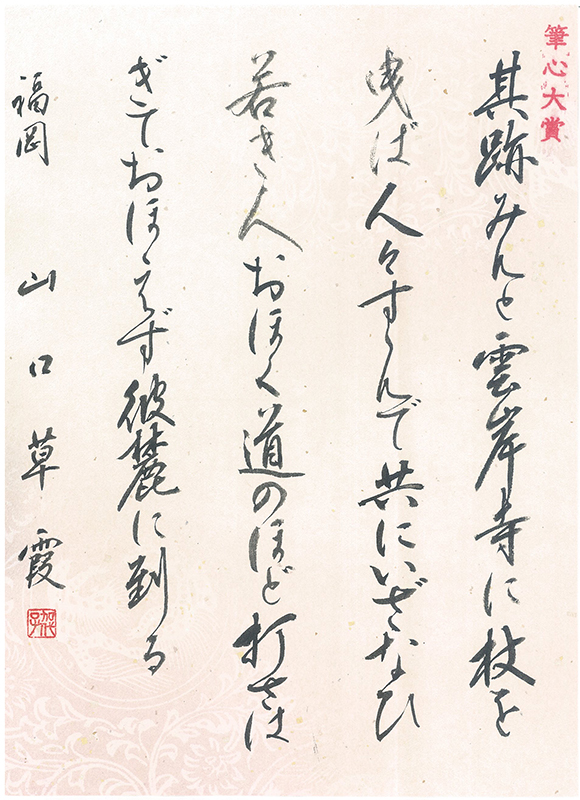 筆心大賞
其跡みんと雲岸寺に杖を
曳ば人々すゝんで共にいざなひ
若き人おほく道のほど打さは
ぎておぼえず彼麓に到る
福岡 山口草霞
加代子